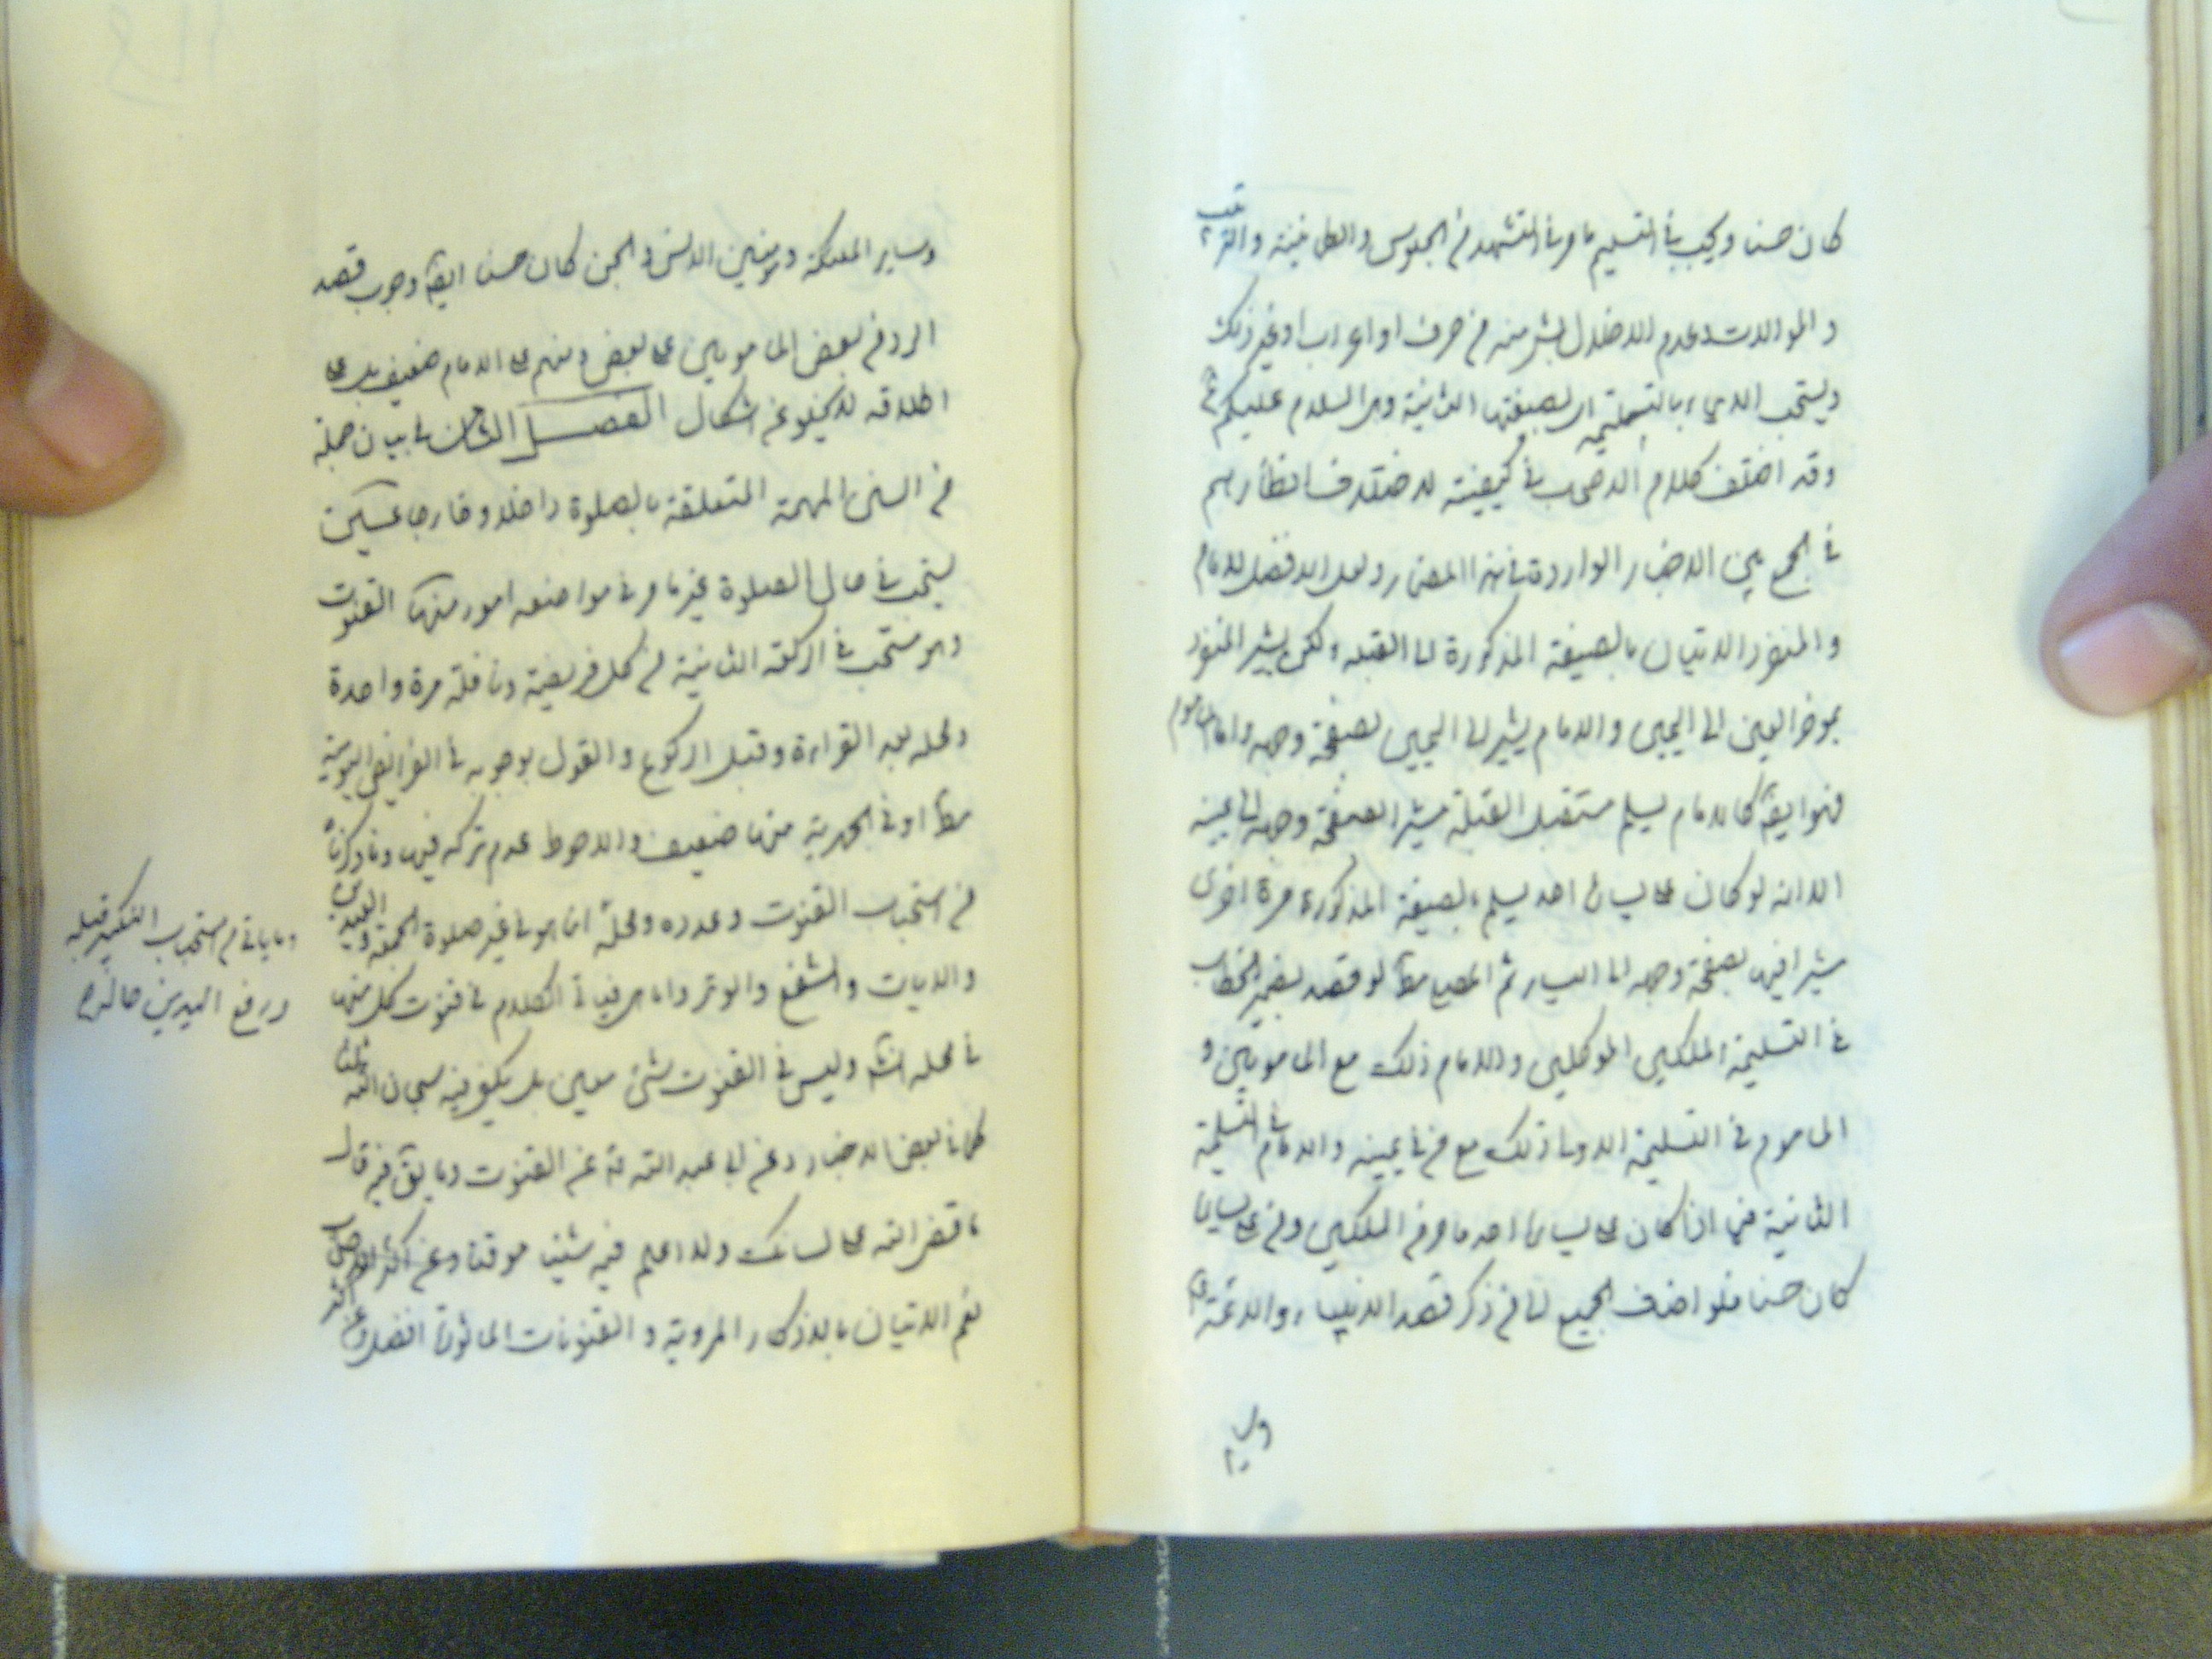 كان حسنا ويجب في التسليم ما مر في التشهد من الجلوس والطمانينة والترتيب
والموالات وعدم الاخلال بشئ منه من حرف او اعراب او غير ذلك
ويستحب الايماء بالتسليمة اى بصيغتها الثانية وهى السلام عليكم
وقد اختلف كلام الاصحاب في كيفيته لاختلاف انظارهم
في الجمع بين الاخبار الواردة في هذا المضمار ولعل الافضل للامام
والمنفرد الاتيان بالصيغة المذكورة الى القبلة ولكن يشير المنفرد
بموخر العين الى اليمين والامام يشير الى اليمين بصفحة وجهه واما الماموم
فهو ايضا كالامام يسلم مستقبل القبلة مشيرا بصفحة وجهه الى يمينه
الا انه لو كان على يساره احد يسلم بالصيغة المذكورة مرة اخرى
مشيرا فيها بصفحة وجهه الى اليسار ثم المصلى مط لو قصد بضمير الخطاب
في التسليمة الملكين الموكلين والامام ذلك مع المامومين و
الماموم في التسليمة الاولى ذلك مع من في يمينه والامام في التسليمة
الثانية فيما اذا كان على يساره احد ما مر من الملكين ومن على يساره
كان حسنا فلو اضاف الجميع الى من ذكر قصد الانبياء والائمة
وسا
وساير الملئكة ومؤمنين الانس والجن كان حسنا ايضا وجوب قصد
الرد من بعض المامومين على بعض ومنهم على الامام ضعيف بل على
اطلاقه لا يخلو عن اشكال الفصل الثامن في بيان جملة
من السنن المهمة المتعلقة بالصلوة داخلا وخارجا
يستحب في حال الصلوة غير ما مر في مواضعه امور منها القنوت
وهو مستحب في الركعة الثانية من كل فريضة ونافلة مرة واحدة
ومحله بعد القراءة وقبل الركوع والقول بوجوبه في الفرايض اليومية
مط او في الجهرية منها ضعيف والاحوط عدم تركه فيها وما ذكرنا
من استحباب القنوت وعدده ومحله انما هو في غير صلوة الجمعة والعيدين
والايات والشفع والوتر واما هى فياتى الكلام في قنوت كل منها
في محله انش وليس في القنوت شئ معين بل يكفى فيه سبحان الله ثلثا
كما في بعض الاخبار وعن ابى عبد الله عن القنوت وما يق فيه قال
ما قضى الله على لسانك ولا اعلم فيه شيئا موقتا وعن اكثر الاصحاب
نعم الاتيان بالاذكار المروية والقنوتات الماثورة افضل
وما ياتى من استحباب التكبير قبله
ورفع اليدين حال